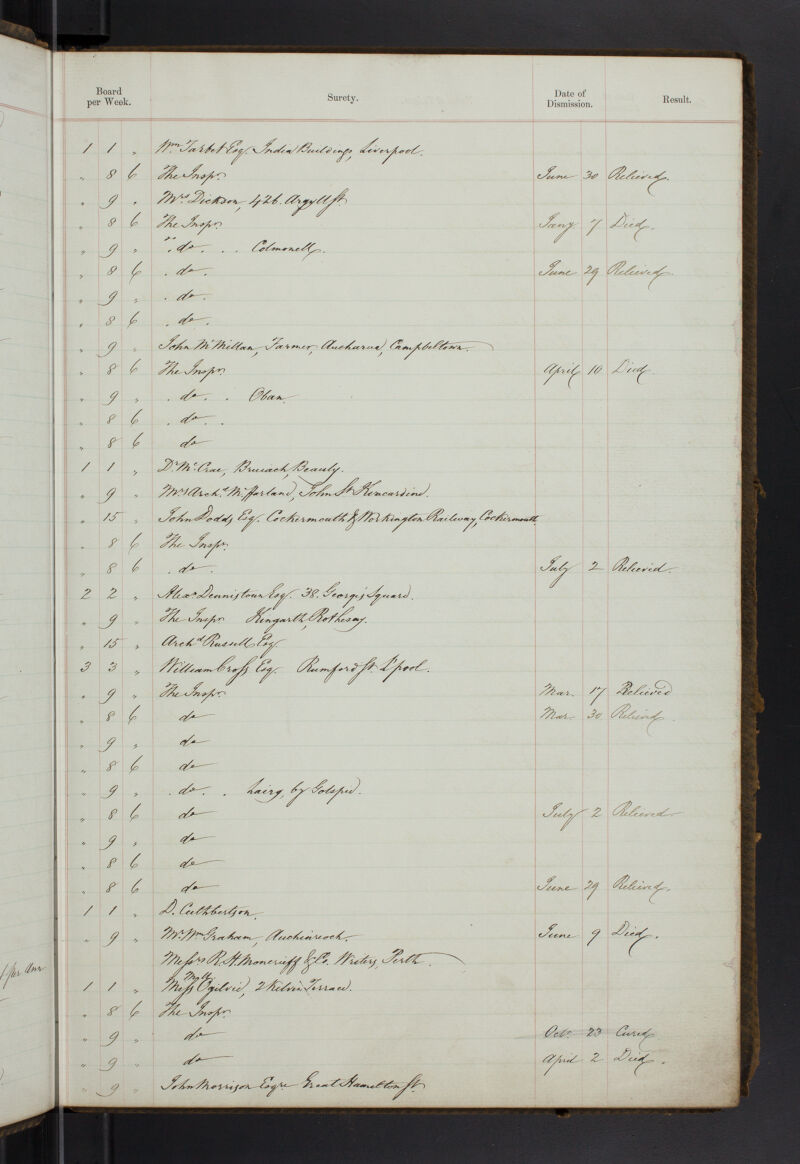 Board per Week. Surety. Date of Dismission. Result.
1 1 " Wm Tarbet Esq. India Buildings, Liverpool.
" 8 6 The Inspr. June 30 Relieved.
" 9 " Mrs Dickson, 426 Argyll St.
" 8 6 The Inspr. Jany 7 Died.
" 9 " " do . . . Colmonell.
" 8 6 . do . June 29 Relieved.
" 9 " . do .
" 8 6 . do .
" 9 " John McMillan, Farmer, Campbeltown.
" 8 6 The Inspr. April 10 Died.
" 9 " . do . . Oban.
" 8 6 . do . .
" 8 6 do
1 1 " Dr McCrae, Beauly.
" 9 " Mrs Archd McFarland, John St Kincardine.
" 15 " John Dodds Esq. Cockermouth & Workington Railway, Cockermouth.
" 8 6 The Inspr.
" 8 6 . do . July 2 Relieved.
2 2 " Alexr Dennistoun Esq. 38. George's Square.
" 9 " The Inspr Kingarth, Rothesay.
" 15 " Archd Russell Esq.
3 3 " William Cross Esq. Rumford St. L'pool.
" 9 " The Inspr. Mar. 17 Relieved
" 8 6 do Mar. 30 Relieved.
" 9 " do
" 8 6 do
" 9 " . do . . Lairg, by Golspie.
" 8 6 do July 2 Relieved.
" 9 " do
" 8 6 do
" 8 6 do June 29 Relieved.
1 1 " D. Cuthbertson.
" 9 " Mr Wm Graham, Auchinreoch. June 9 Died.
Messrs R. H. Moncrieff & Co. Writers, Perth.
1 1 " Miss Ogilvie, 2 Kelvin Terrace.
" 8 6 The Inspr.
" 9 " do Oct. 23 Cured.
" 9 " do April 2 Died.
" 9 " John Morrison Esqre Great Hamilton St.
per Ann